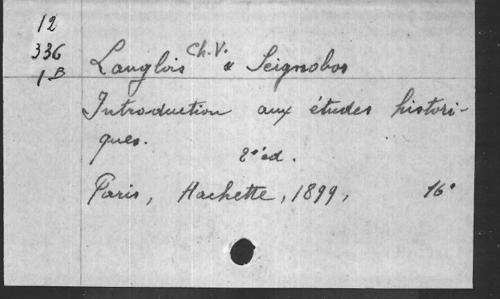 12
336
1 B
Langlois Ch. V. & Seignobos
Introduction aux études histori-
ques.
2e éd.
Paris, Hachette, 1899, 16°